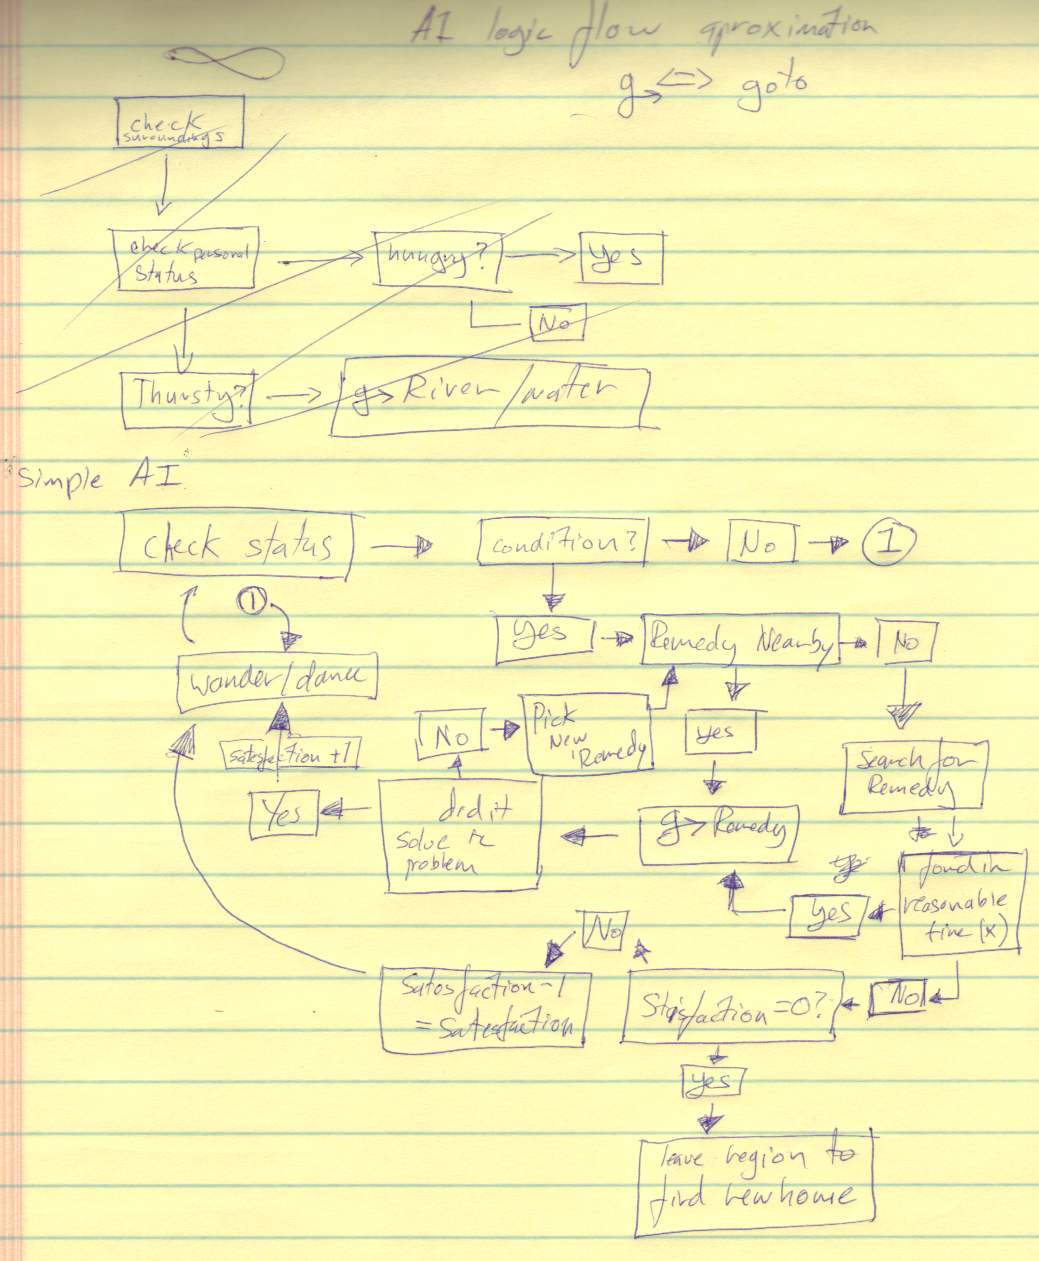 AI logic flow aproximation
g→ <=> goto
check
surroundings
check personal
status
hungry?
Yes
No
Thursty?
g→ River/water
"Simple AI"
check status
condition?
No
1
1
Yes
Remedy Nearby
No
wander/dance
Pick
New
Remedy
No
yes
satesfaction +1
Search for
Remedy
Yes
did it
solve
problem
g> Remedy
found in
reasonable
time (x)
Yes
No
Satosfaction -1
= Satesfaction
Stisfaction = 0?
No
yes
leave region to
find new home